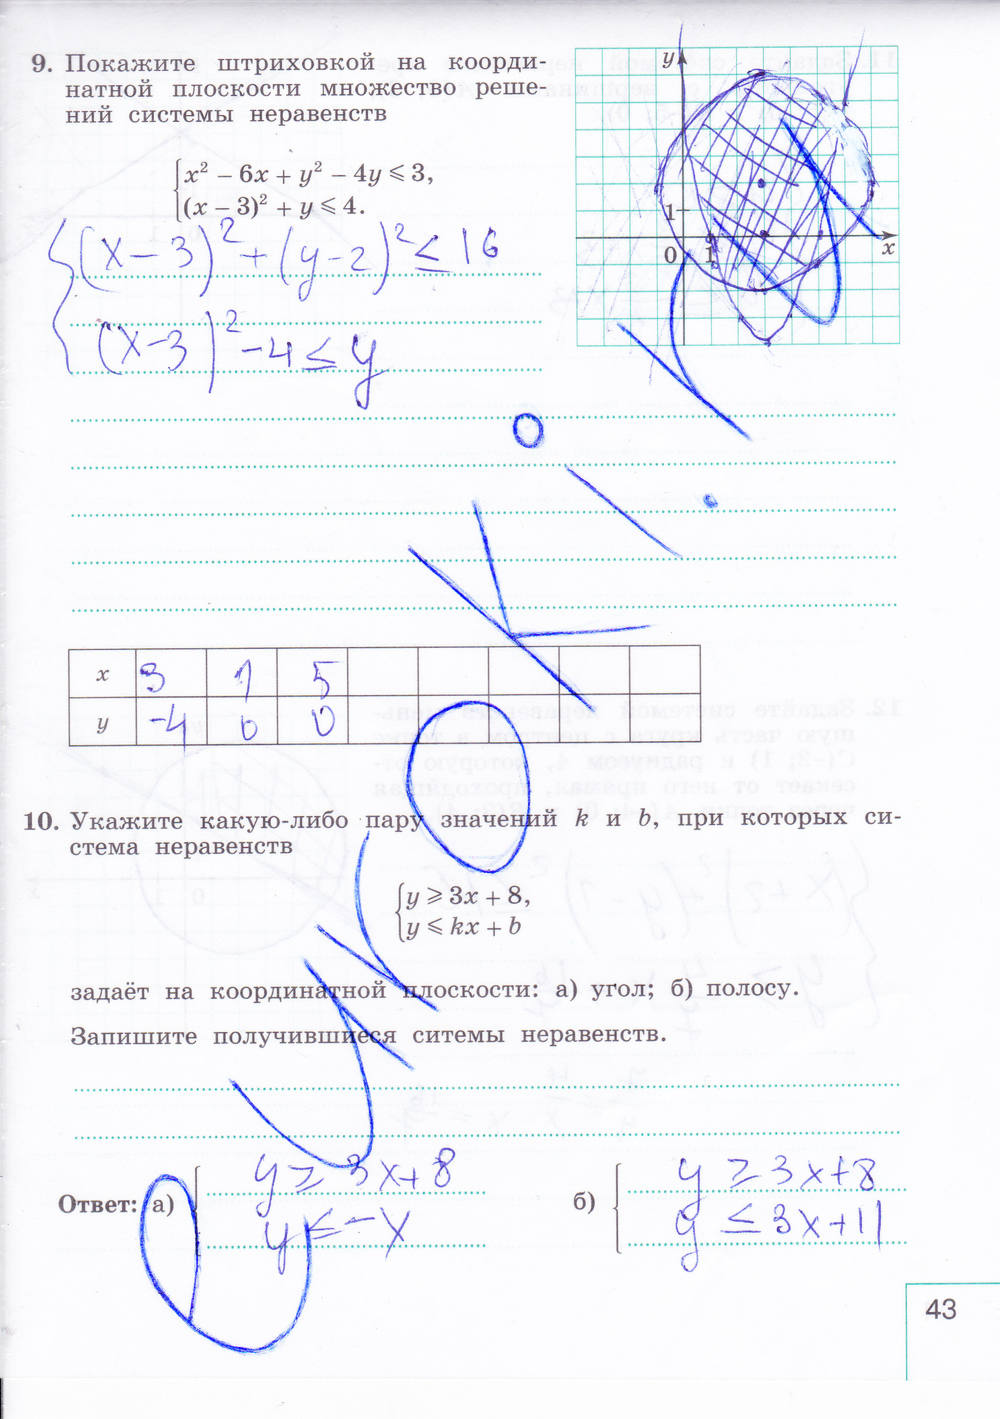 9. Покажите штриховкой на коорди-
натной плоскости множество реше-
ний системы неравенств
x² − 6x + y² − 4y ⩽ 3,
(x − 3)² + y ⩽ 4.
(x−3)² + (y−2)² ≤ 16
(x−3)² −4 ≤ y
y
1
0 1 x
x 3 1 5
y −4 0 0
10. Укажите какую-либо пару значений k и b, при которых си-
стема неравенств
y ⩾ 3x + 8,
y ⩽ kx + b
задаёт на координатной плоскости: а) угол; б) полосу.
Запишите получившиеся ситемы неравенств.
Ответ: а) y ≥ 3x+8
y ≤ −x
б) y ≥ 3x+8
y ≤ 3x+11
43